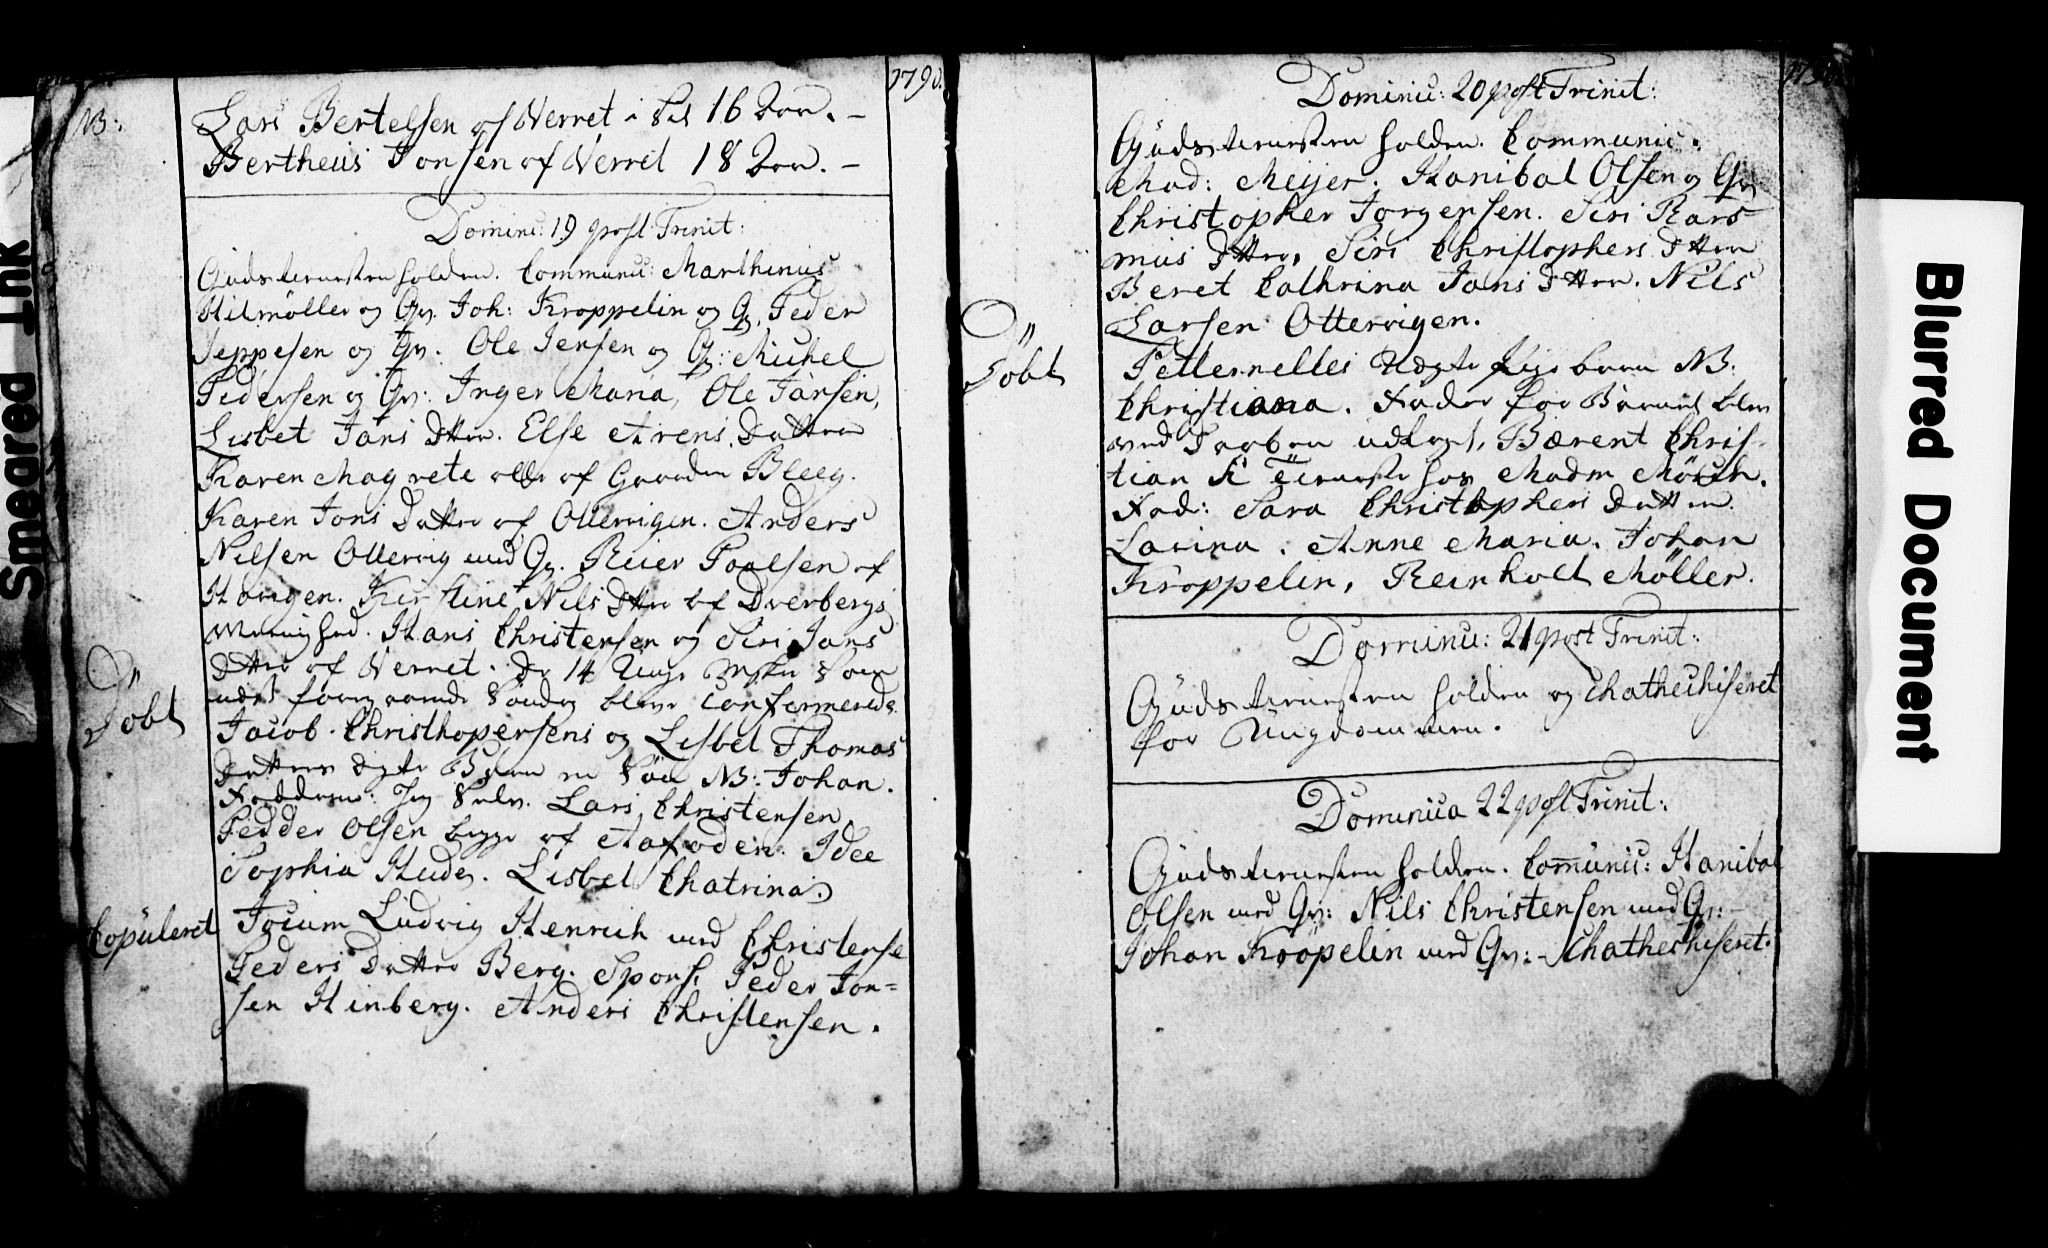 1790.
NB:
Lars Bertelsen af Verret i Sit 16 Aar. –
Bertheus Jonsen af Verret 18 Aar. –
Dominic: 19 post Trinit:
Gudstienesten holden. Communic: Marthinus
Stilmöller og Qv. Joh: Kroppelin og Q. Peder
Jeppesen og Qv: Ole Jensen og Q: Michel
Pedersen og Qv: Inger Maria, Ole Jansen,
Lisbet Jans Dtter. Else Arens Datter
Karen Magrete alle af Gaarden Bleeg.
Karen Jons Datter af Ottervigen. Anders
Nilsen Ottervig med Qv. Reier Poelsen af
Havigen. Kirstine Nils Dtter af Dverbergs
Menighed. Hans Christensen og Siri Jans
Dtter af Verret. De 14 Unge som
næst foregaaende Søndag bleve Confermerede.
Döbt
Jacob Christhopersens og Lisbet Thomas
Datters ægte Barn en Søn NB: Johan.
Fadderne: Jeg Selv. Lars Christensen.
Pedder Olsen begge af Aafoden. Idee
Sophia Heide. Lisbet Chatrina.
Copuleret
Jocum Ludvig Henrich med Christense
Peders Datter Berg. Spons. Peder Jon=
sen Hinberg. Anders Christensen.
Dominic: 20 post Trinit:
Gudstienesten holden. Communic:
Mad: Meijer. Hanibal Olsen og Qv
Christopher Jorgensen. Siri Ras-
mus Dtter, Siri Christophers Dtter
Beret Cathrina Jans Dtter. Nils
Larsen Ottervigen.
Döbt
Petternelles Uægte Pige barn NB:
Christiana. Fader for Barnet blev
ved Daaben udlagt, Bærent Chris-
tian F Tieneste hos Madm Mörch.
Fad: Sara Christophers Datter.
Larina. Anne Maria. Johan
Kroppelin, Reinholt Möller.
Dominic: 21 post Trinit:
Gudstienesten holden og Chathechiseret
for Ungdommen.
Dominica 22 post Trinit:
Gudstienesten holden. Comunic: Hanibal
Olsen med Qv: Nils Christensen med Qv:
Johan Kröpelin med Qv: – Chathechiseret.
Smeared Ink
Blurred Document